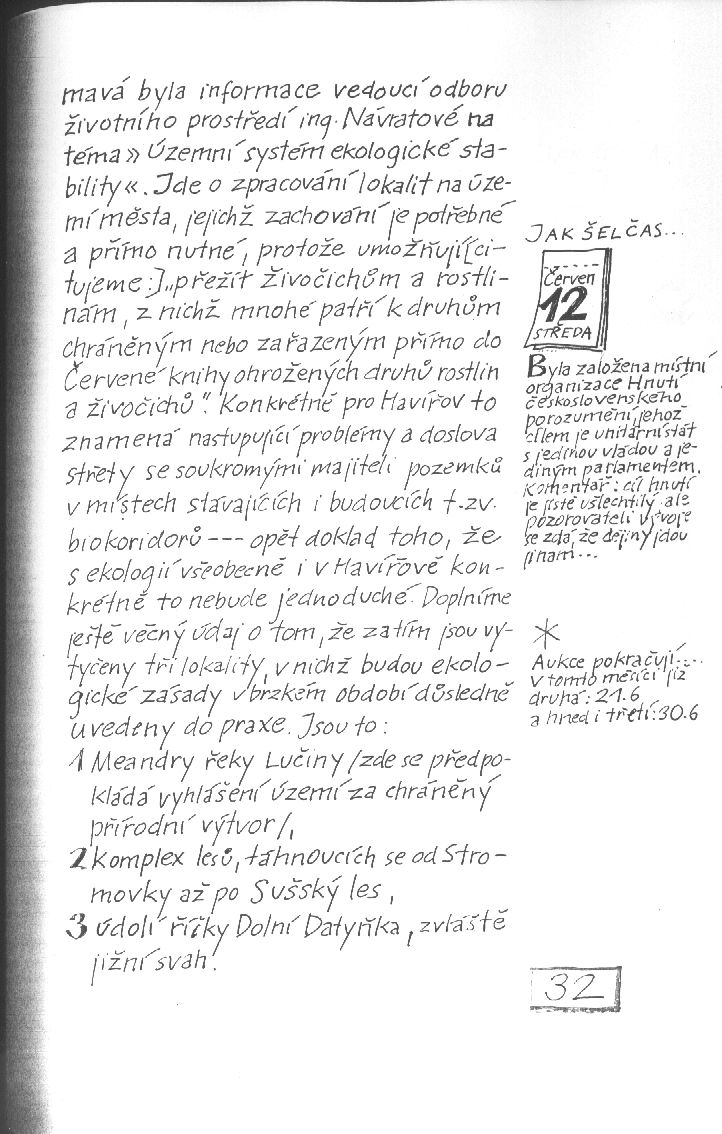 mavá byla informace vedoucí odboru
životního prostředí ing. Návratové na
téma » Územní systém ekologické sta-
bility «. Jde o zpracování lokalit na úze-
mí města, jejichž zachování je potřebné
a přímo nutné, protože umožňují [ci-
tujeme:] „přežít živočichům a rostli-
nám, z nichž mnohé patří k druhům
chráněným nebo zařazeným přímo do
Červené knihy ohrožených druhů rostlin
a živočichů". Konkrétně pro Havířov to
znamená nastupující problémy a doslova
střety se soukromými majiteli pozemků
v místech stávajících i budoucích t.zv.
biokoridorů --- opět doklad toho, že
s ekologií všeobecně i v Havířově kon-
krétně to nebude jednoduché. Doplníme
ještě věcný údaj o tom, že zatím jsou vy-
tyčeny tři lokality, v nichž budou ekolo-
gické zásady v brzkém období důsledně
uvedeny do praxe. Jsou to:
1 Meandry řeky Lučiny /zde se předpo-
kládá vyhlášení území za chráněný
přírodní výtvor/,
2 komplex lesů, táhnoucích se od Stro-
movky až po Sušský les,
3 údolí říčky Dolní Datyňka, zvláště
jižní svah.
JAK ŠEL ČAS...
Červen
12
STŘEDA
Byla založena místní
organizace Hnutí
československého
porozumění, jehož
cílem je unitární stát
s jedinou vládou a je-
diným parlamentem.
Komentář: cíl hnutí
je jistě ušlechtilý ale
pozorovateli vývoje
se zdá, že dějiny jdou
jinam...
*
Aukce pokračují:...
v tomto měsíci již
druhá: 21.6
a hned i třetí: 30.6
32